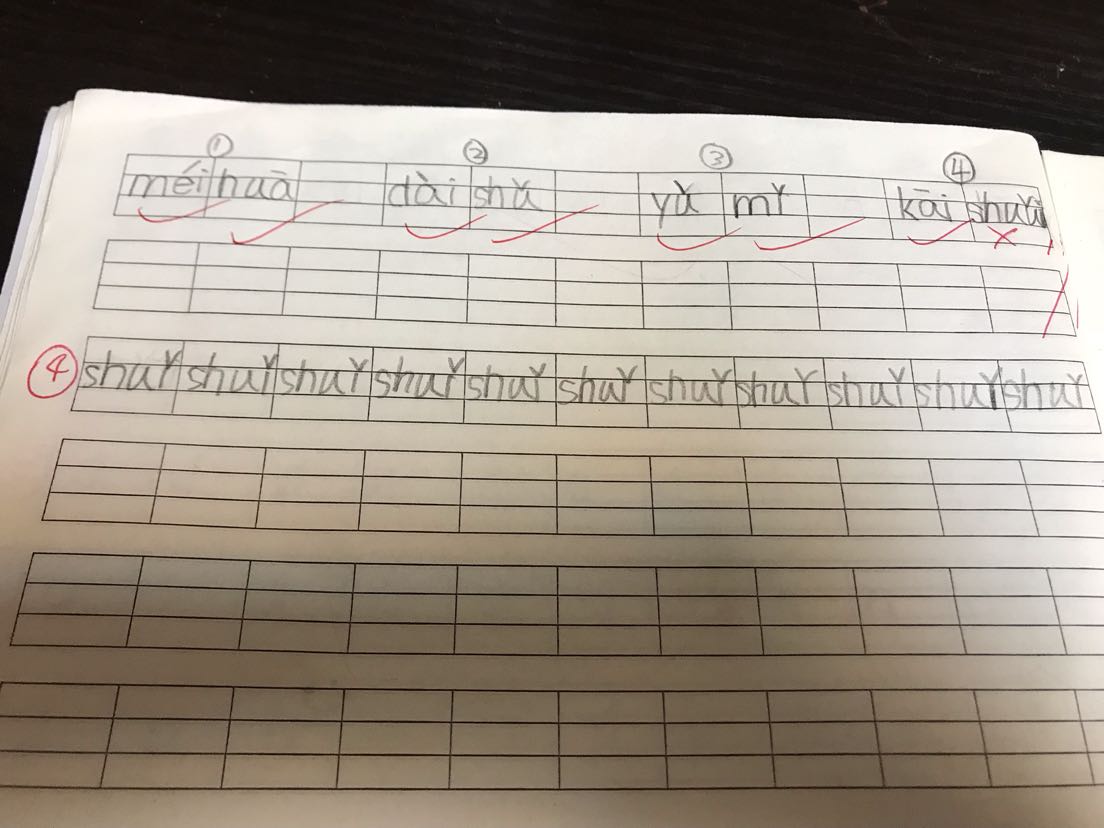 ① ② ③ ④
méi huā dài shǔ yǔ mǐ kāi
④ shuǐ shuǐ shuǐ shuǐ shuǐ shuǐ shuǐ shuǐ shuǐ shuǐ shuǐ